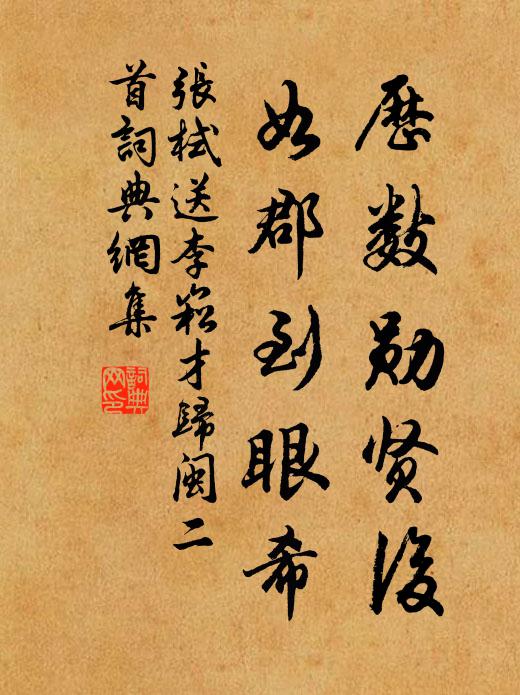 歷數勛贤後
如郡到眼希
張栻送李崧才歸閩二
首詞典網集
詞典网印